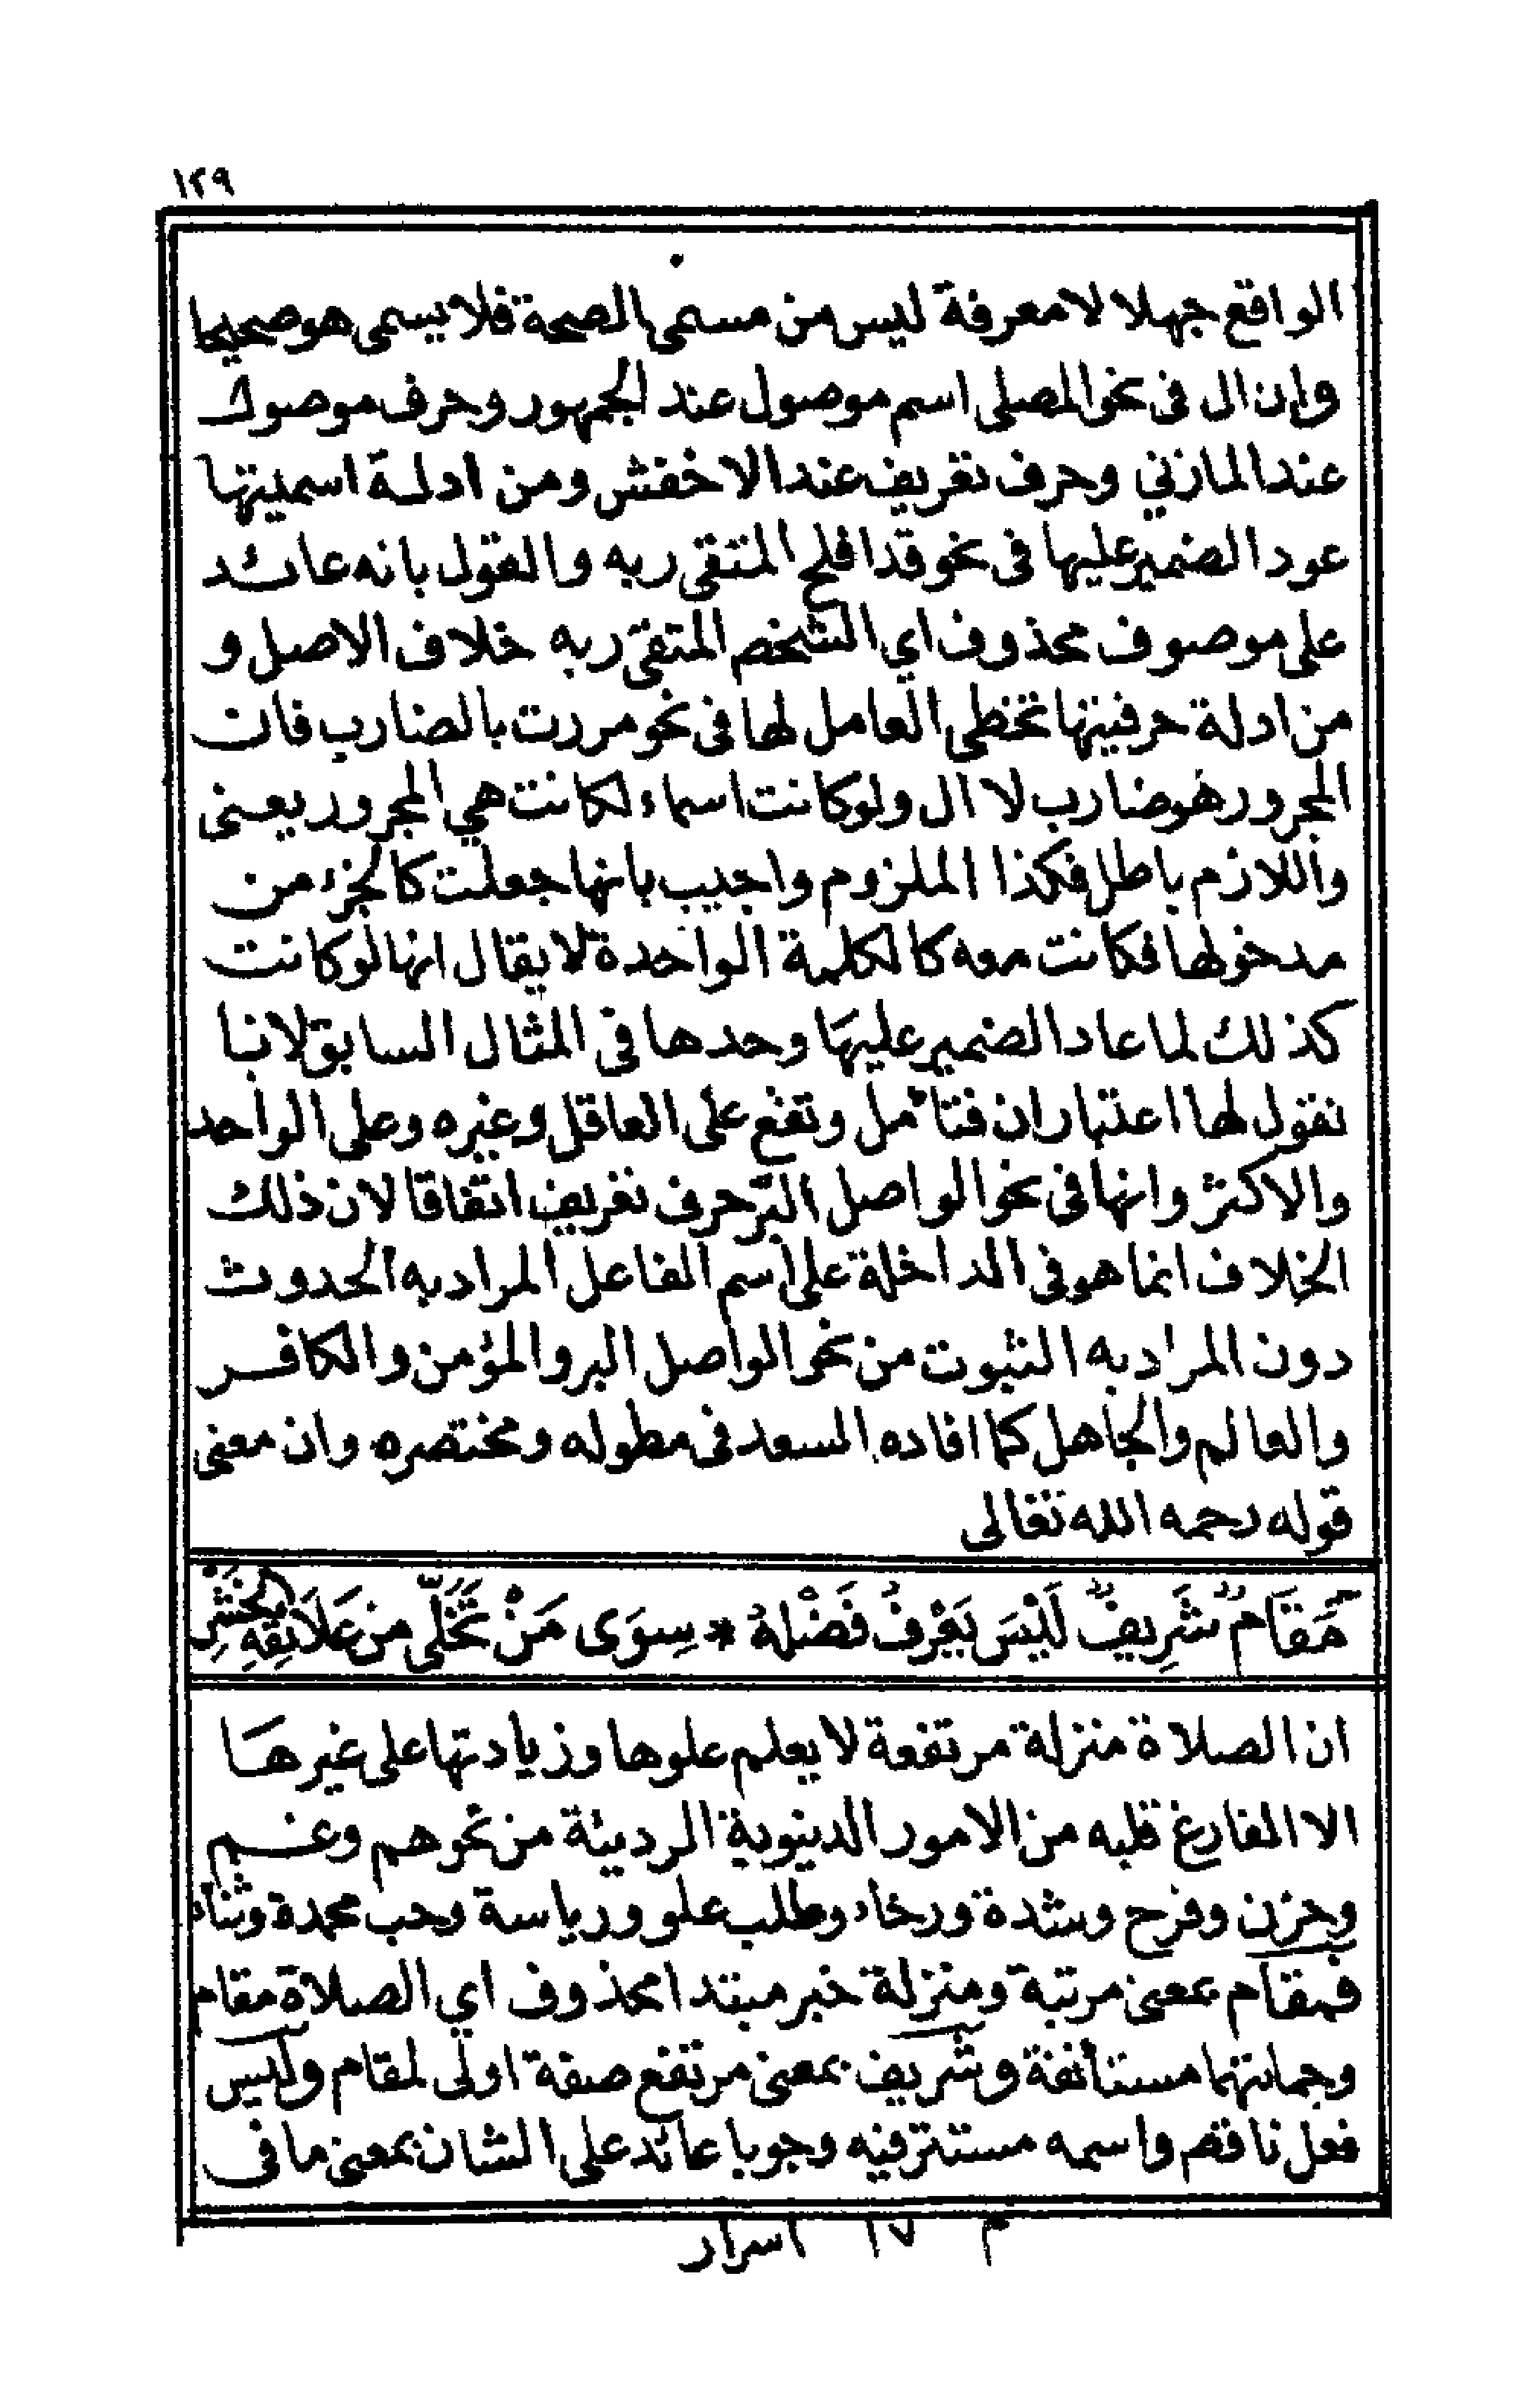 ١٢٩
الواقع جهلا لا معرفة ليس من مسمى الصحة فلا يسمى هو صحيحا
وان ال فى نحو المصلى اسم موصول عند الجمهور وحرف موصول
عند المازني وحرف تعريف عند الاخفش ومن ادلة اسميتها
عود الضمير عليها فى نحو قد افلح المتقى ربه والقول بانه عائد
على موصوف محذوف اي الشخص المتقى ربه خلاف الاصل و
من ادلة حرفيتها تخطى العامل لها فى نحو مررت بالضارب فان
المجرور هو ضارب لا ال ولو كانت اسماء لكانت هي المجرور يعنى
واللازم باطل فكذا الملزوم واجيب بانها جعلت كالجزء من
مدخولها فكانت معه كالكلمة الواحدة لا يقال انها لو كانت
كذلك لما عاد الضمير عليها وحدها فى المثال السابق لانا
نقول لها اعتباران فتأمل وتقع على العاقل وغيره وعلى الواحد
والاكثر وانها فى نحو الواصل البر حرف تعريف اتفاقا لان ذلك
الخلاف انما هو فى الداخلة على اسم الفاعل المراد به الحدوث
دون المراد به الثبوت من نحو الواصل البر والمؤمن والكافر
والعالم والجاهل كما افاده السعد فى مطوله ومختصره وان معنى
قوله رحمه الله تعالى
مَقَامٌ شَرِيفٌ لَيْسَ يَعْرِفُ فَضْلَهُ * سِوَى مَنْ تَخَلَّى مِن عَلَائِقِهِ
ان الصلاة منزلة مرتفعة لا يعلم علوها وزيادتها على غيرها
الا الفارغ قلبه من الامور الدينوية الرديئة من نحو هم وغم
وحزن وفرح وشدة ورخاء وطلب علو ورياسة وحب محمدة وثناء
فمقام بمعنى مرتبة ومنزلة خبر مبتدا محذوف اي الصلاة مقام
وجملتهما مستأنفة وشريف بمعنى مرتفع صفة اولى لمقام وليس
فعل ناقص واسمه مستتر فيه وجوبا عائد على الشان بمعنى ما فى
م ١٧ اسرار